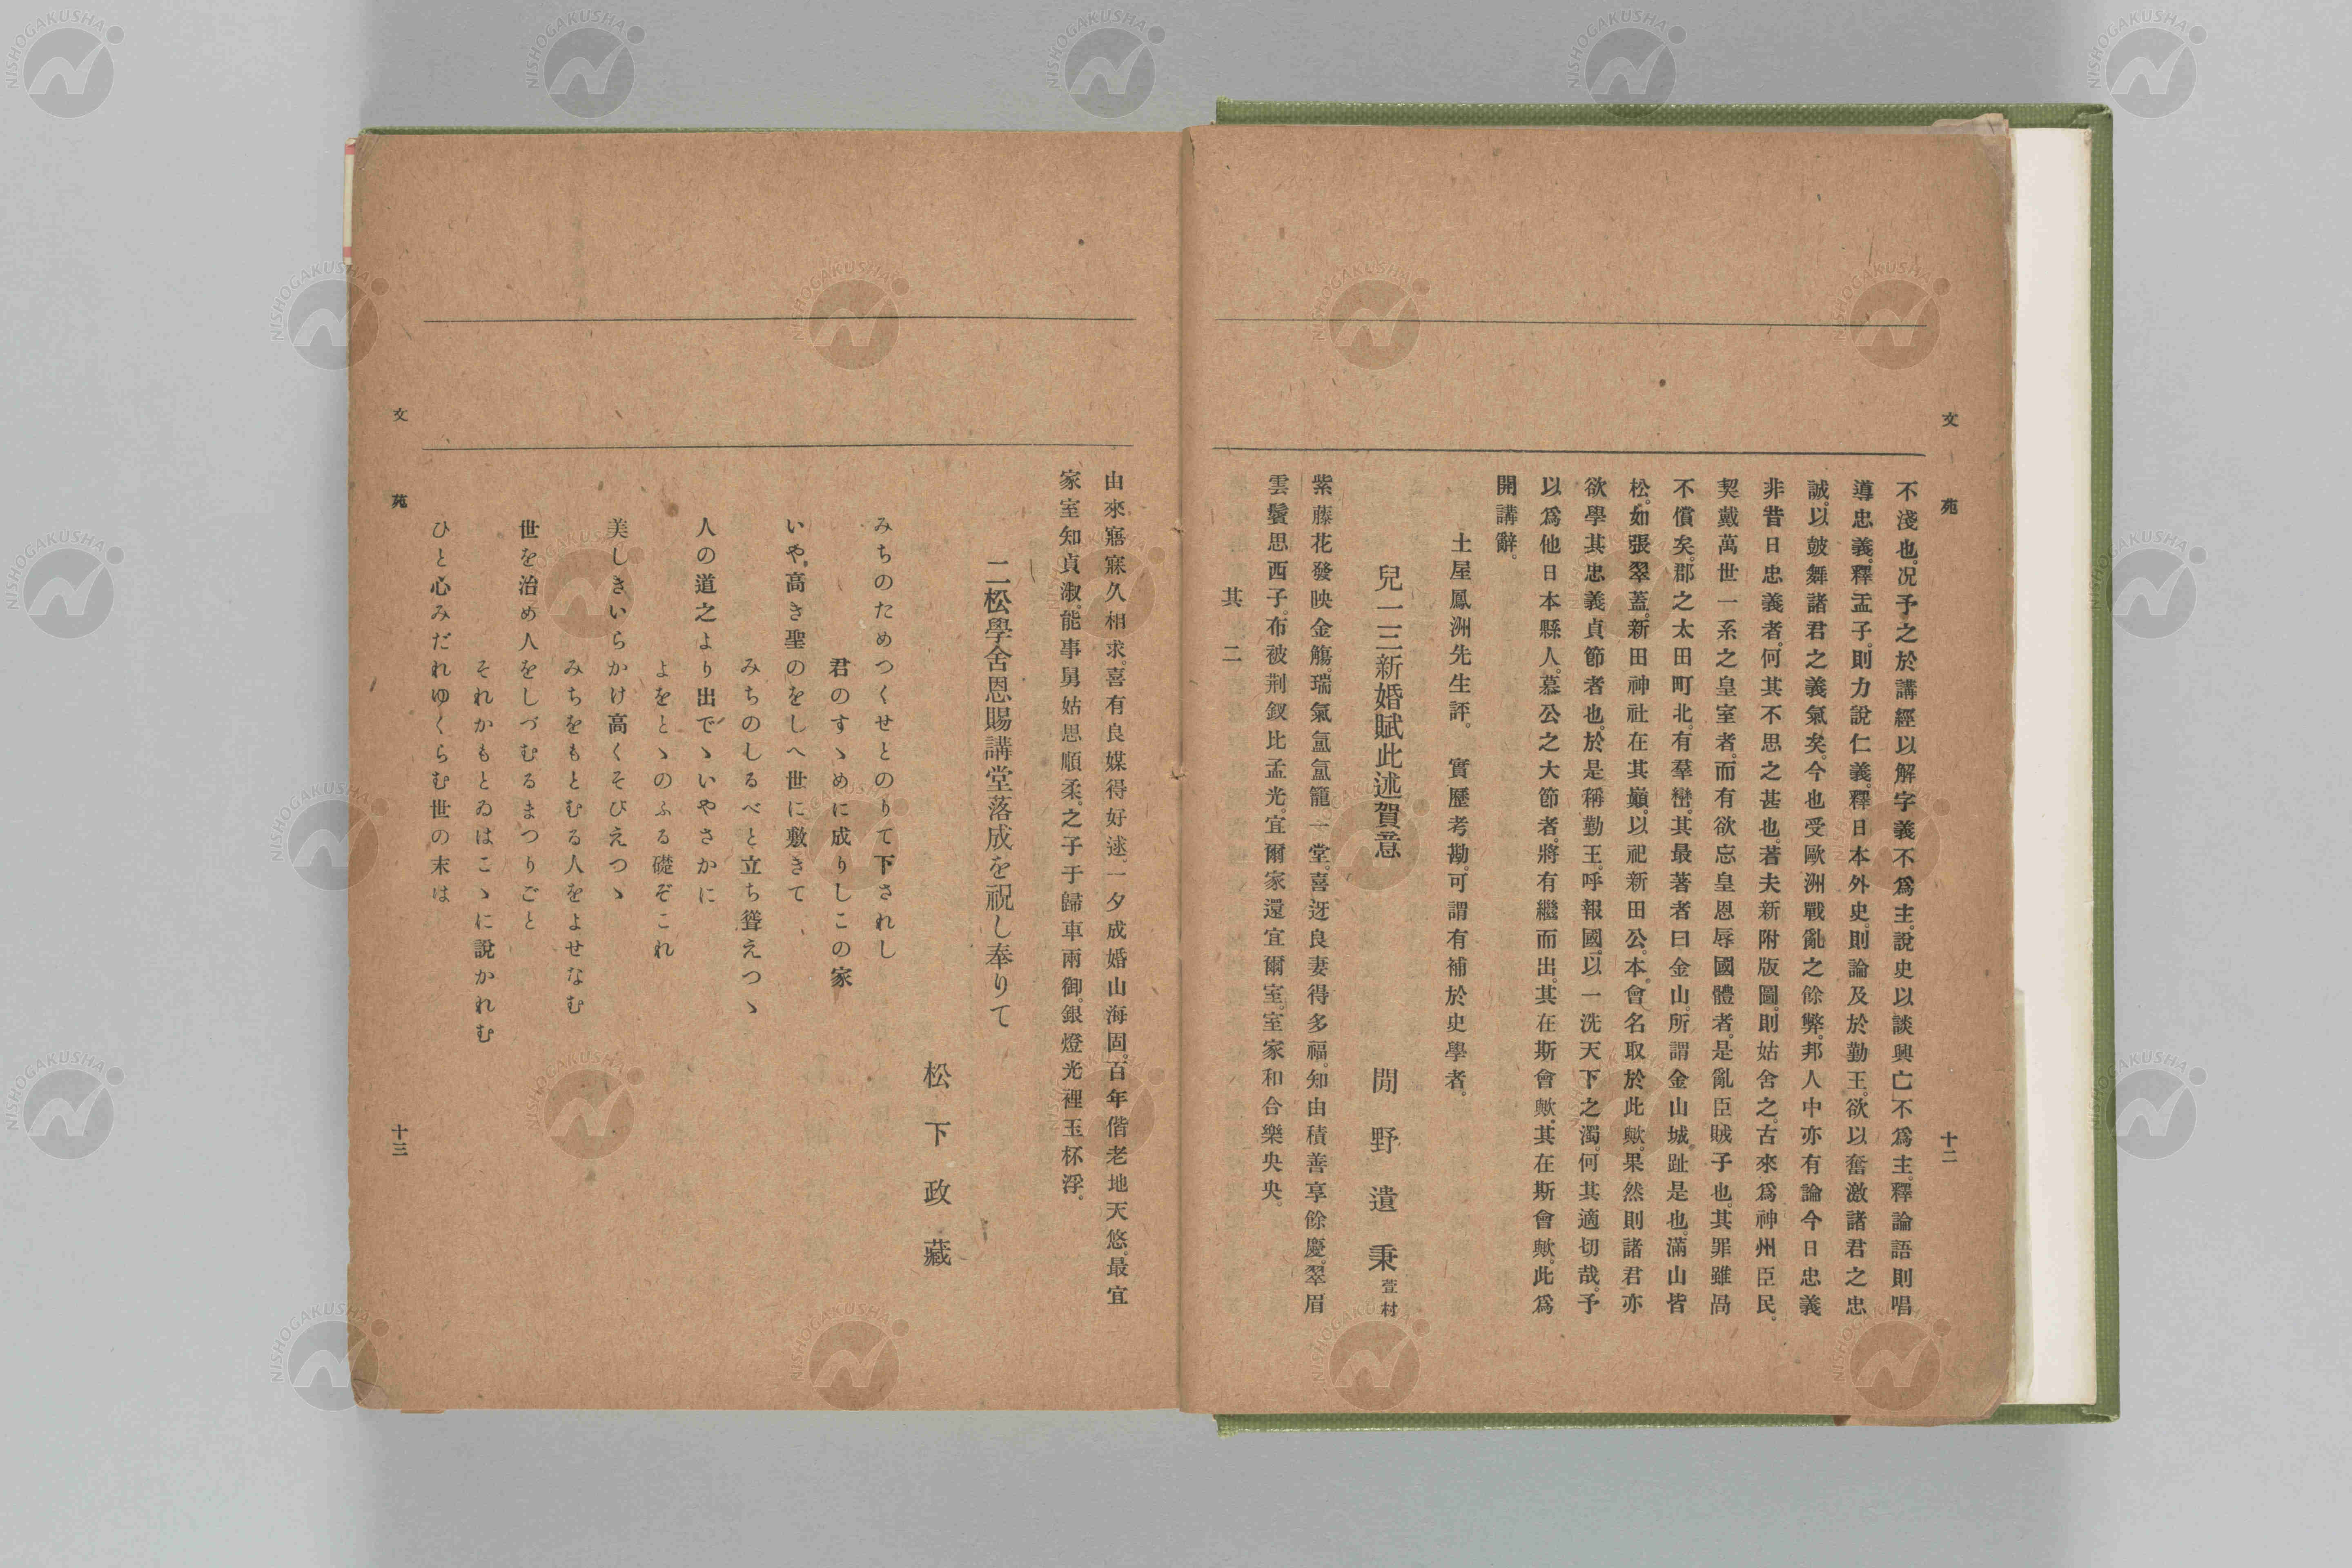 文苑
十二
不淺也。况予之於講經以解字義不爲主。說史以談興亡不爲主。釋論語則唱
導忠義。釋孟子。則力說仁義。釋日本外史。則論及於勤王。欲以奮激諸君之忠
誠。以皷舞諸君之義氣矣。今也受歐洲戰亂之餘弊。邦人中亦有論今日忠義
非昔日忠義者。何其不思之甚也。若夫新附版圖。則姑舍之。古來爲神州臣民。
契戴萬世一系之皇室者。而有欲忘皇恩辱國體者。是亂臣賊子也。其罪雖咼
不償矣。郡之太田町北。有羣巒。其最著者曰金山。所謂金山城趾是也。滿山皆
松。如張翠蓋。新田神社在其巓。以祀新田公。本會名取於此歟。果然則諸君亦
欲學其忠義貞節者也。於是稱勤王。呼報國。以一洗天下之濁。何其適切哉。予
以爲他日本縣人。慕公之大節者。將有繼而出。其在斯會歟。其在斯會歟。此爲
開講辭。
土屋鳳洲先生評。 實歷考勘。可謂有補於史學者。
兒一三新婚賦此述賀意
間野遺秉 萱村
紫藤花發映金觴。瑞氣氳氳籠一堂。喜迓良妻得多福。知由積善享餘慶。翠眉
雲鬟思西子。布被荆釵比孟光。宜爾家還宜爾室。室家和合樂央央。
其二
由來寤寐久相求。喜有良媒得好逑。一夕成婚山海固。百年偕老地天悠。最宜
家室知貞淑。能事舅姑思順柔。之子于歸車兩御。銀燈光裡玉杯浮。
二松學舍恩賜講堂落成を祝し奉りて
松下政藏
みちのためつくせとのりて下されし
君のすゝめに成りしこの家
いや高き聖のをしへ世に敷きて
みちのしるべと立ち聳えつゝ
人の道之より出でゝいやさかに
よをとゝのふる礎ぞこれ
美しきいらかけ高くそびえつゝ
みちをもとむる人をよせなむ
世を治め人をしづむるまつりごと
それかもとゐはこゝに說かれむ
ひと心みだれゆくらむ世の末は
文苑
十三
NISHOGAKUSHA